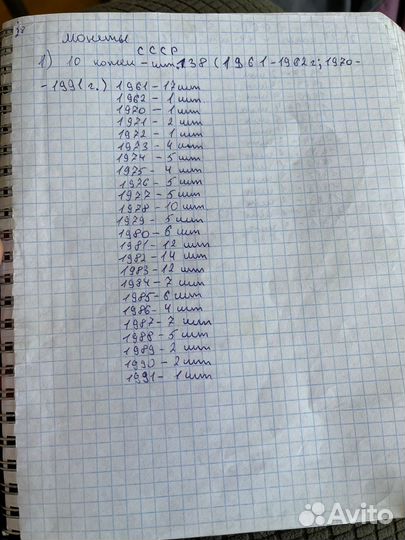 Монеты
СССР
1) 10 копеек - шт. 138 (1961-1962г; 1970-
-1991г.) 1961 - 17 шт
1962 - 1 шт
1970 - 1 шт
1971 - 2 шт
1972 - 1 шт
1973 - 4 шт
1974 - 5 шт
1975 - 4 шт
1976 - 5 шт
1977 - 5 шт
1978 - 10 шт
1979 - 5 шт
1980 - 6 шт
1981 - 12 шт
1982 - 14 шт
1983 - 12 шт
1984 - 7 шт
1985 - 6 шт
1986 - 4 шт
1987 - 7 шт
1988 - 5 шт
1989 - 2 шт
1990 - 2 шт
1991 - 1 шт
Avito